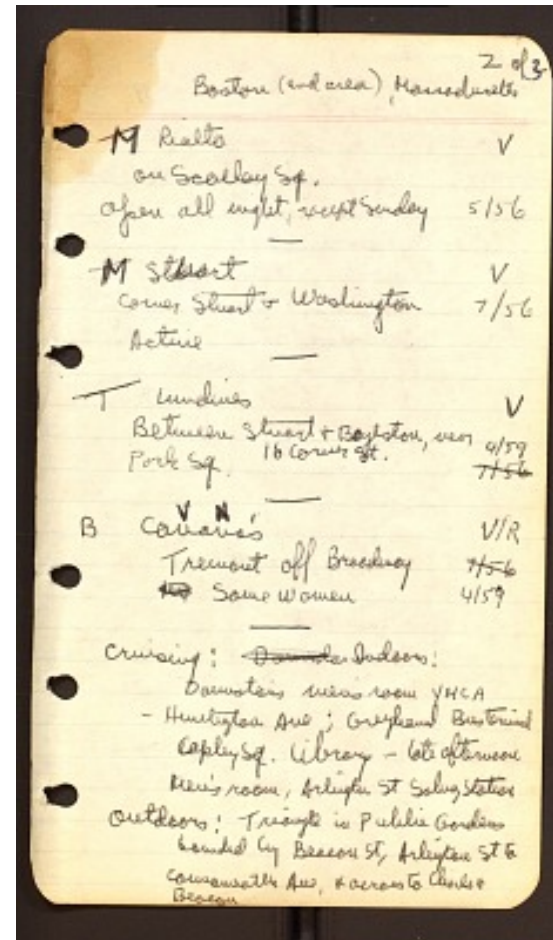 2 of 3
Boston (and area), Massachusetts
M Rialto V
on Scollay Sq.
open all night, except Sunday 5/56
M Stuart V
Corner Stuart & Washington 7/56
Active
T Lundines V
Between Stuart & Boylston, near 4/59
16 Carver St.
Park Sq. 7/56
V N
B Cavana's V/R
Tremont off Broadway 7/56
Some Women 4/59
Cruising: Indoors:
Downstairs men's room YMCA
- Huntington Ave; Greyhound Bus terminal
Copley Sq. Library - late afternoon
Men's room, Arlington St Subway Station
Outdoors: Triangle in Public Gardens
bounded by Beacon St, Arlington St to
Commonwealth Ave, & across to Charles &
Beacon